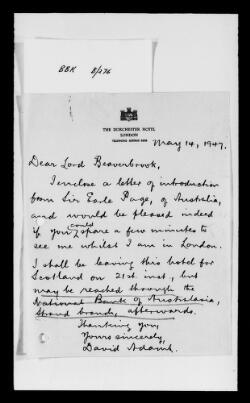 BBK B/276
THE DORCHESTER HOTEL
LONDON
May 14, 1947.
Dear Lord Beaverbrook,
I enclose a letter of introduction
from Sir Earle Page, of Australia,
and would be pleased indeed
if you could spare a few minutes to
see me whilst I am in London.
I shall be leaving this hotel for
Scotland on 21st inst, but
may be reached through the
National Bank of Australasia,
Strand branch, afterwards.
Thanking you,
Yours sincerely,
David Adams.